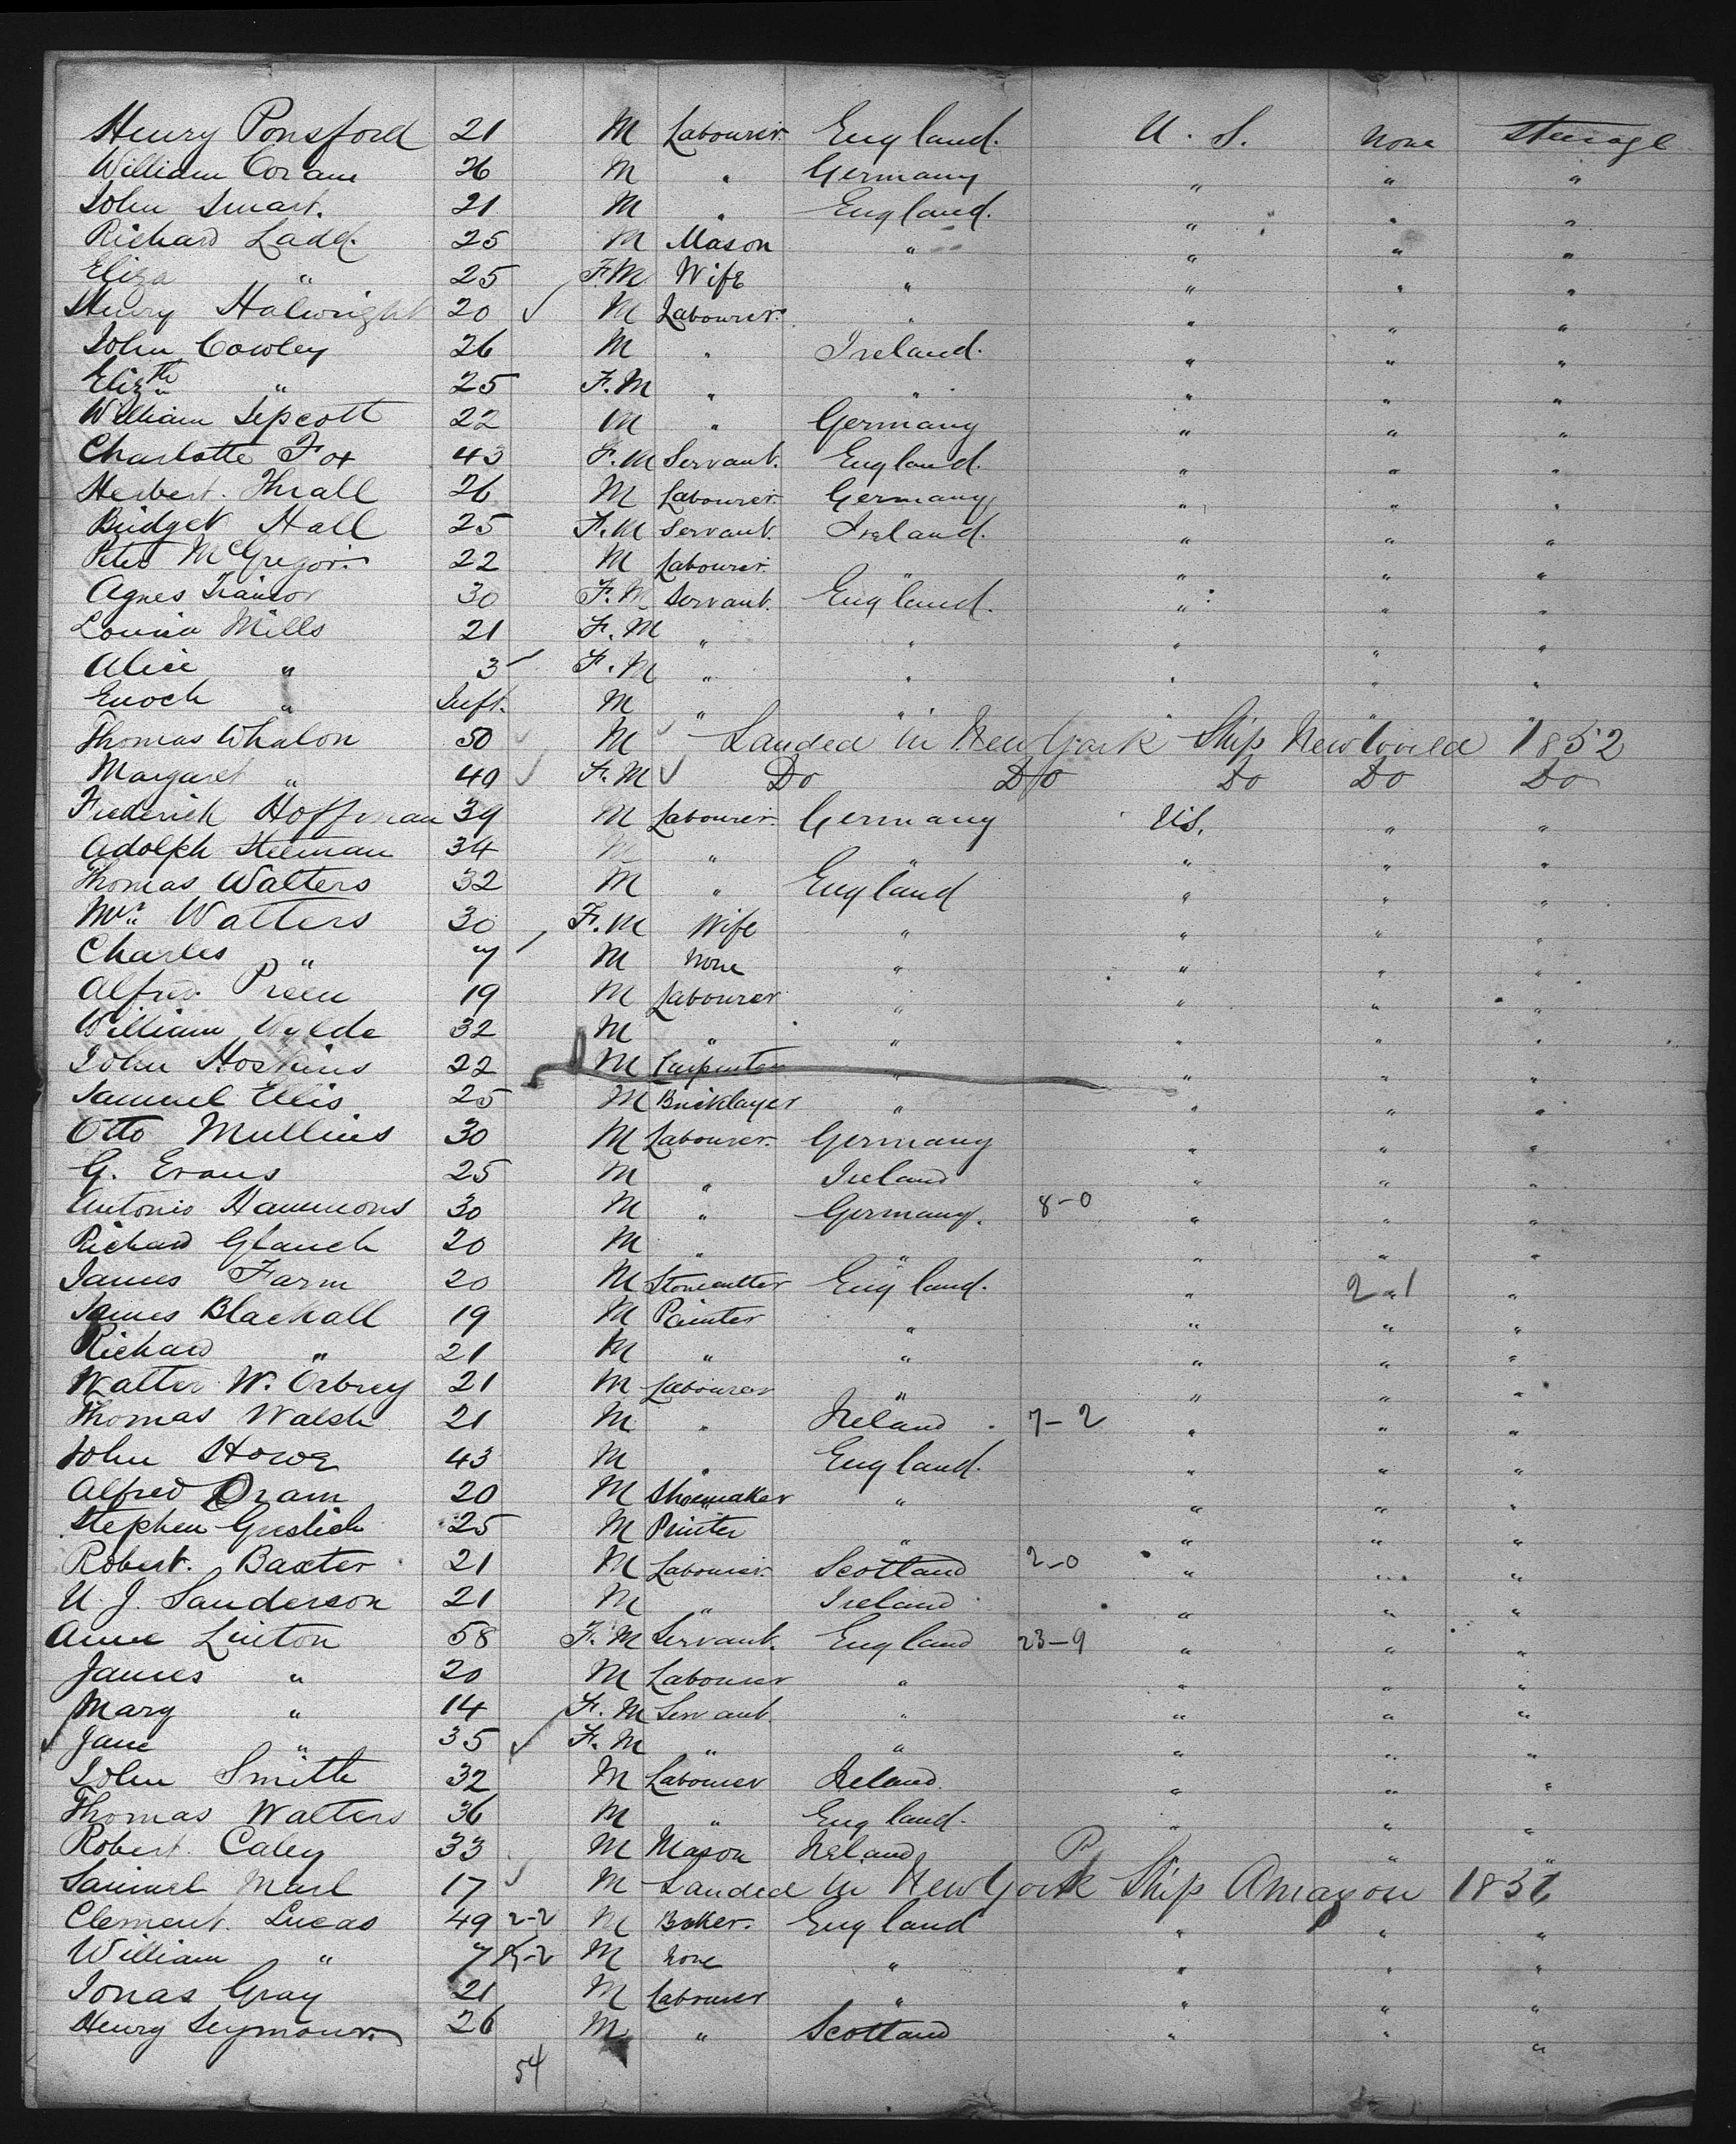 Henry Ponsford 21 M Labourer. England. U. S. None Steerage
William Coram 26 M " Germany " " "
John Smart. 21 M " England. " " "
Richard Ladd. 25 M Mason " " " "
Eliza " 25 F.M Wife " " " "
Henry Halwright 20 M Labourer. " " " "
John Cowley 26 M " Ireland. " " "
Elizth " 25 F.M " " " " "
William Sepcott 22 M " Germany " " "
Charlotte Fox 43 F.M Servant. England. " " "
Herbert. Thrall 26 M Labourer. Germany " " "
Bridget Hall 25 F.M Servant. Ireland. " " "
Peter McGregor. 22 M Labourer. " " " "
Agnes Trainor 30 F.M Servant. England. " " "
Louisa Mills 21 F.M " " " " "
Alice " 3 F.M " " " " "
Enoch " Inft. M " " " " "
Thomas Whalon 50 M Landed in New York Ship New World 1852
Margaret " 40 F.M Do Do Do Do Do
Frederick Hoffman 39 M Labourer. Germany U.S. " "
Adolph Steeman 34 M " " " " "
Thomas Walters 32 M " England " " "
Mrs. Walters 30 F.M Wife " " " "
Charles " 7 M None " " " "
Alfred Preen 19 M Labourer " " " "
William Wylde 32 M " " " " "
John Hoskins 22 M Carpenter " " " "
Samuel Ellis 25 M Bricklayer " " " "
Otto Mullins 30 M Labourer. Germany " " "
G. Evans 25 M " Ireland " " "
Antonio Hammons 30 M " Germany. 8-0 " " "
Richard Glanch 20 M " " " " "
James Farm 20 M Stonecutter England. " 2-1 "
James Blackall 19 M Painter " " " "
Richard " 21 M " " " " "
Walter W. Orbrey 21 M Labourer " " " "
Thomas Walsh 21 M " Ireland 7-2 " " "
John Howe 43 M " England. " " "
Alfred Oram 20 M Shoemaker " " " "
Stephen 25 M Printer " " " "
Robert. Baxter 21 M Labourer. Scotland 2-0 " " "
U. J. Sanderson 21 M " Ireland " " "
Anne Linton 58 F.M Servant. England 23-9 " " "
James " 20 M Labourer " " " "
Mary " 14 F.M Servant. " " " "
Jane " 35 F.M " " " " "
John Smith 32 M Labourer Ireland. " " "
Thomas Walters 36 M " England. " " "
Robert. Caley 33 M Mason Ireland " "
Samuel Marl 17 M Landed in New York Ship Amazon
Clement. Lucas 49 2-2 M Baker. England " " "
William " 7 M None " " " "
Jonas Gray 21 M Labourer " " " "
Henry Seymour. 26 M " Scotland " " "
54